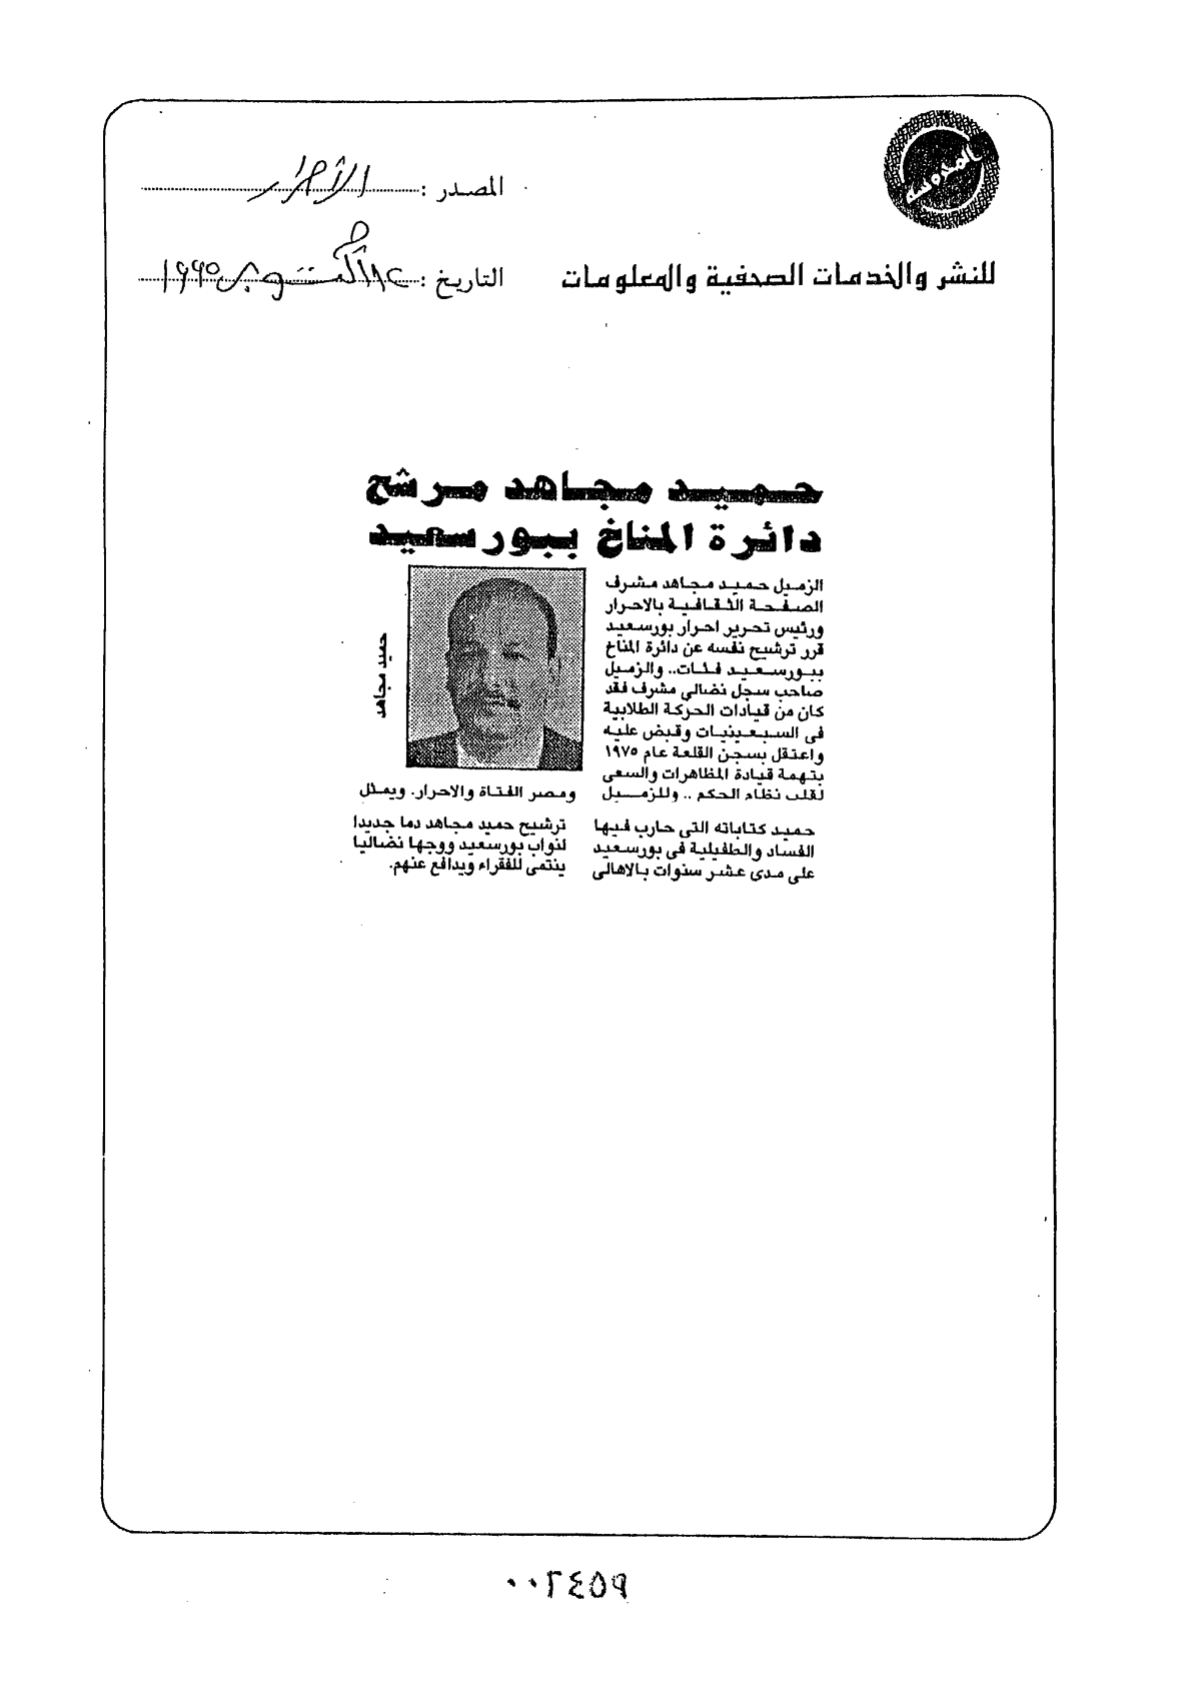 المصدر : الأحرار
للنشر والخدمات الصحفية والمعلومات
التاريخ : أكتوبر ١٩٩٥
حميد مجاهد مرشح
دائرة المناخ ببورسعيد
الزميل حميد مجاهد مشرف
الصفحة الثقافية بالاحرار
ورئيس تحرير احرار بورسعيد
قرر ترشيح نفسه عن دائرة المناخ
ببورسعيد فئات.. والزميل
صاحب سجل نضالى مشرف فقد
كان من قيادات الحركة الطلابية
فى السبعينيات وقبض عليه
واعتقل بسجن القلعة عام ١٩٧٥
بتهمة قيادة المظاهرات والسعى
لقلب نظام الحكم .. وللزميل
حميد كتاباته التى حارب فيها
الفساد والطفيلية فى بورسعيد
على مدى عشر سنوات بالاهالى
حميد مجاهد
ومصر الفتاة والاحرار. ويمثل
ترشيح حميد مجاهد دما جديدا
لنواب بورسعيد ووجها نضاليا
ينتمى للفقراء ويدافع عنهم.
٠٠٢٤٥٩